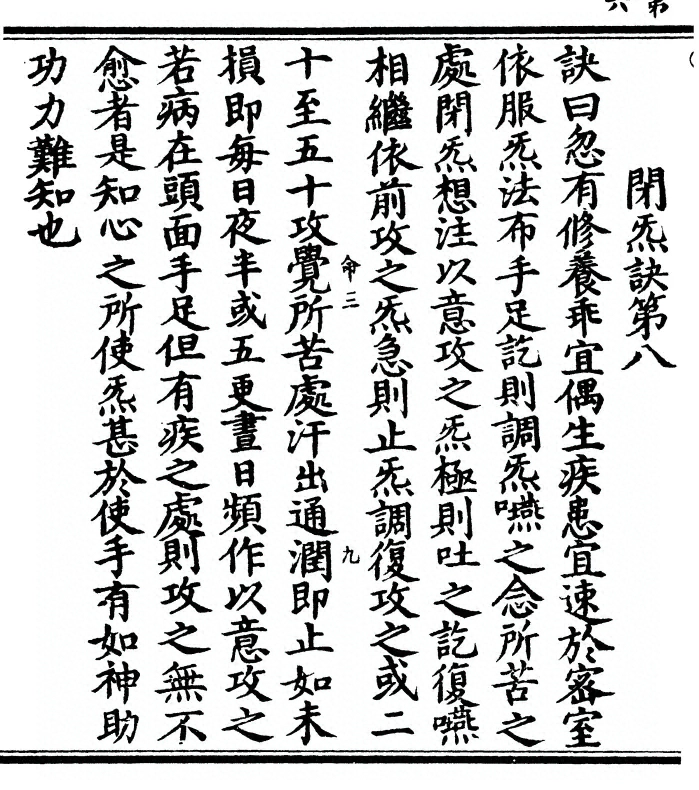 閉炁訣第八
訣曰忽有修養乖宜偶生疾患宜速於密室
依服炁法布手足訖則調炁嚥之念所苦之
處閉炁想注以意攻之炁極則吐之訖復嚥
相繼依前攻之炁急則止炁調復攻之或二
命三 九
十至五十攻覺所苦處汗出通潤即止如未
損即每日夜半或五更晝日頻作以意攻之
若病在頭面手足但有疾之處則攻之無不
愈者是知心之所使炁甚於使手有如神助
功力難知也